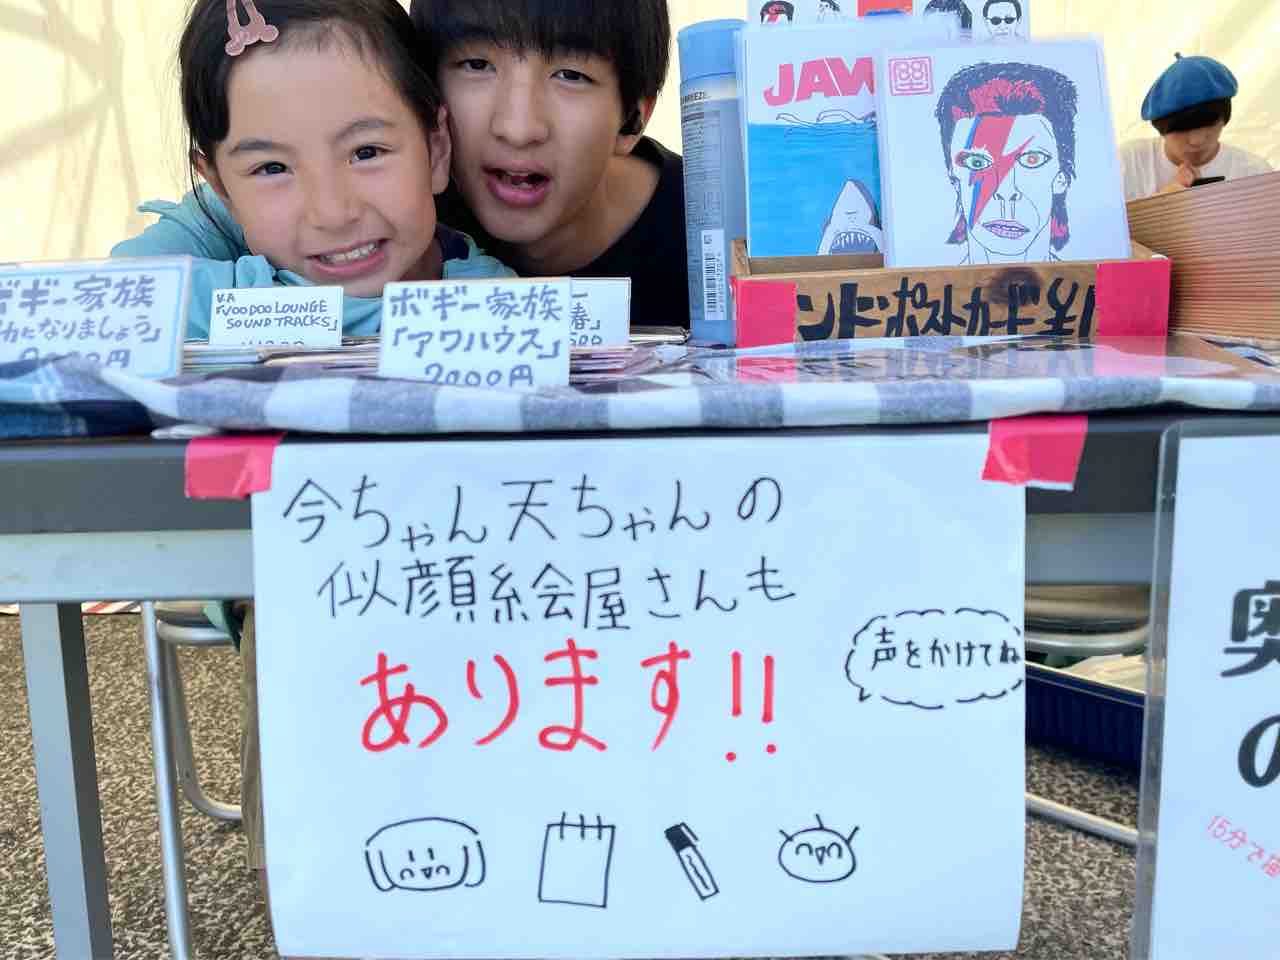 JAW
BREEZE
ボギー家族
かになりましょう」
2000円
V.A
「VOODOO LOUNGE
SOUND TRACKS」
ボギー家族
「アワハウス」
2000円
春」
ンドポストカード
今ちゃん天ちゃんの
似顔絵会屋さんも
あります!!
声をかけてね
奥
の
15分で描